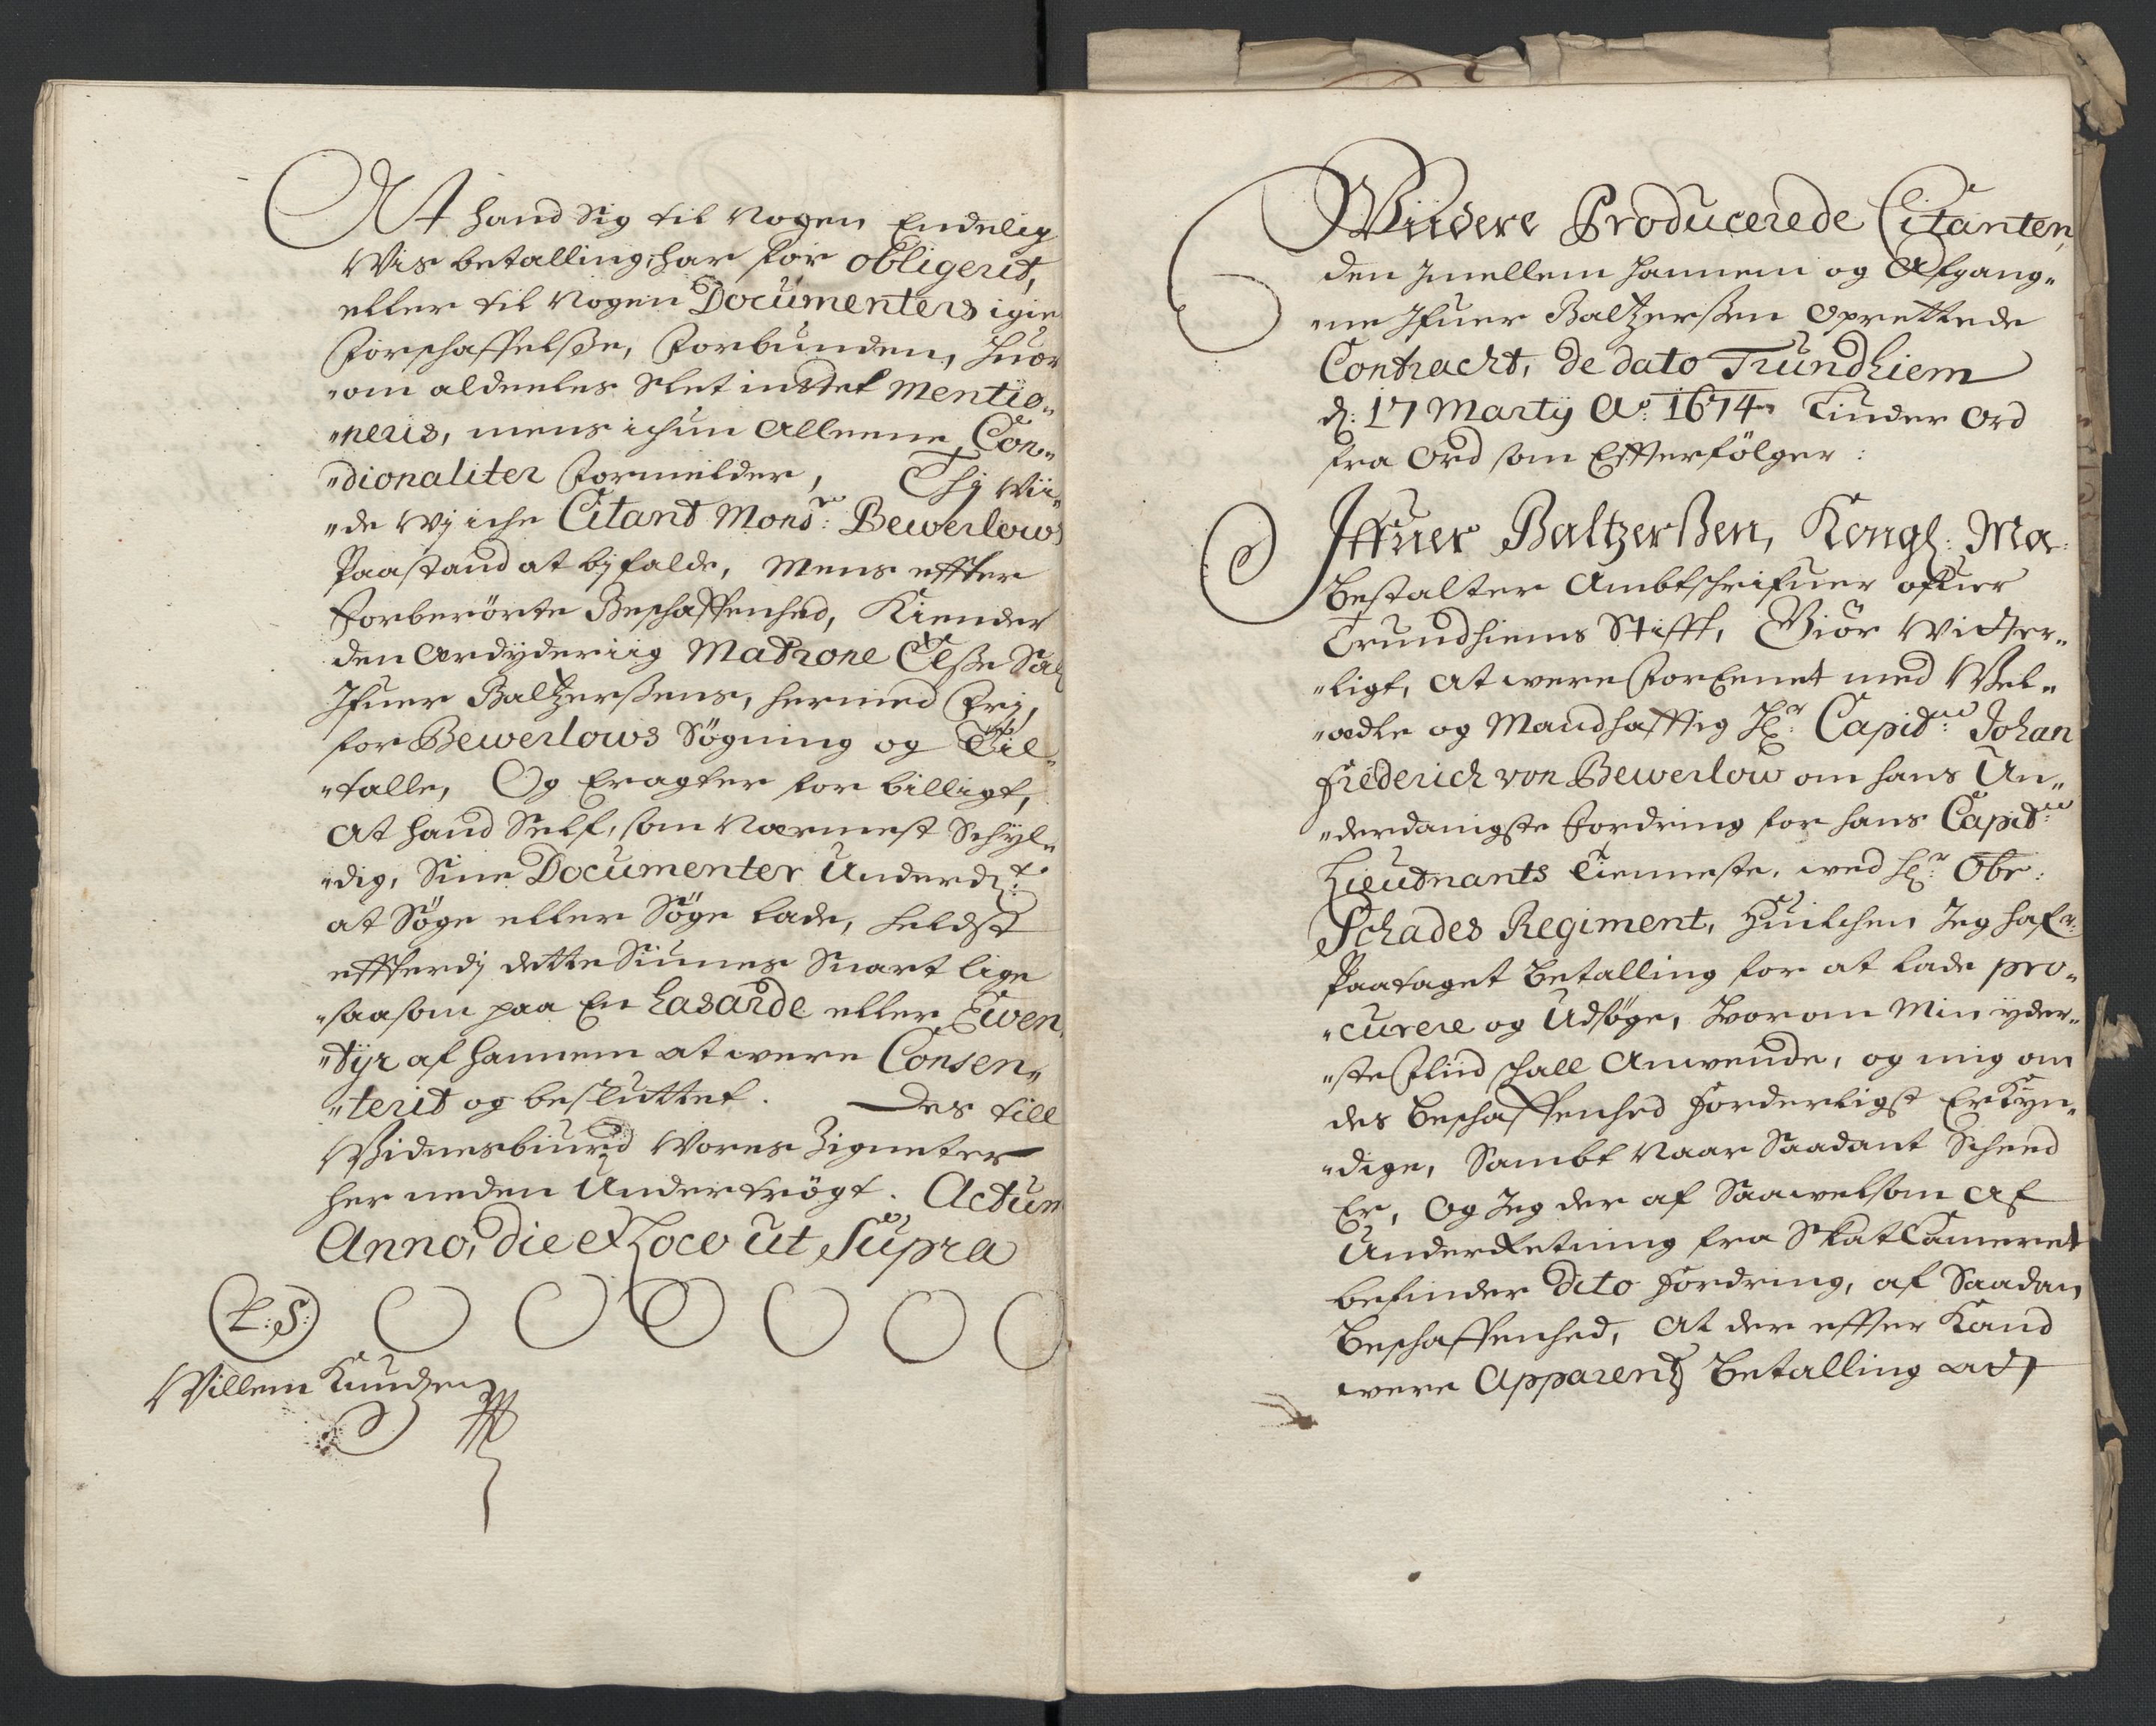 At hand Sig til Nogen Endelig
Vis betalling, har for obligerit,
eller til Nogen Documenters igien
Forschaffelsße, Forbunden, Huor
"om aldeeles Slet indtet mentio„
"neris, mens ichun Alleene, Con„
"dionaliter Formelder, Thj Vii„
"de Wj iche Citant Monsr: Bewerlows
Paastand at bjfalde, Mens effter
Forberörte Beschaffenhed, Kiender
den Ærdyderiig Matrone Else Sal
Ifuer Baltzerßens, hermed Frj,
for Bewerlows Sögning og Til„
"talle, Og Eragter for billigt,
At hand Self, som Nærmest Schyl„
"dig, Sine Documenter Underdt:
at Söge eller Söge lade, heldst
effterdj dette Siunes Snart lige
"saasom paa En hasarde eller Even„
"tyr af hannem at were Consen„
"terit og besluttet. Des till
Vidnesbiurd Vores Zigneter
her neden Undertrögt. Actum
Anno, die et Loco ut Supra
L: S:
Willem Knudzen
Viidere Producerede Citanten,
den Imellem hannem og Afgang„
"ne Ifuer Baltzerßen Oprettede
Contracht, de dato Trundhiem
d: 17 Marty Ao. 1674. Liuder Ord
fra Ord som Effterfölger:
Iffuer Baltzerßen, Kongl: Ma:
Bestalter Ambtschrifuer ofuer
Trundhiems Stifft, Giör Witter„
"ligt, At were ForEenet med Wel„
"ædle og Mandhafftig Hr: Capitn: Johan
Friederich von Bewerlow om hans Un„
"derdanigste Fordring for hans Capitn:
Lieutnants Tienneste, wed Hr: Obr:
Schades Regiment, Huilchen Jeg hafr:
Paataget Betalling for at lade pro„
"curere og Udsöge, Hvorom Min yder„
"ste Fliid schall Anwende, og mig om
des Beschaffenhed Forderligst Erkyn„
"dige, Sambt Naar Saadant Scheed
Er, Og Jeg der af Saawelsom Af
Underretning fra SkatCameret
befinder dito Fordring, af Saadan
Beschaffenhed, At der effter Kand
were Apparentz Betalling at